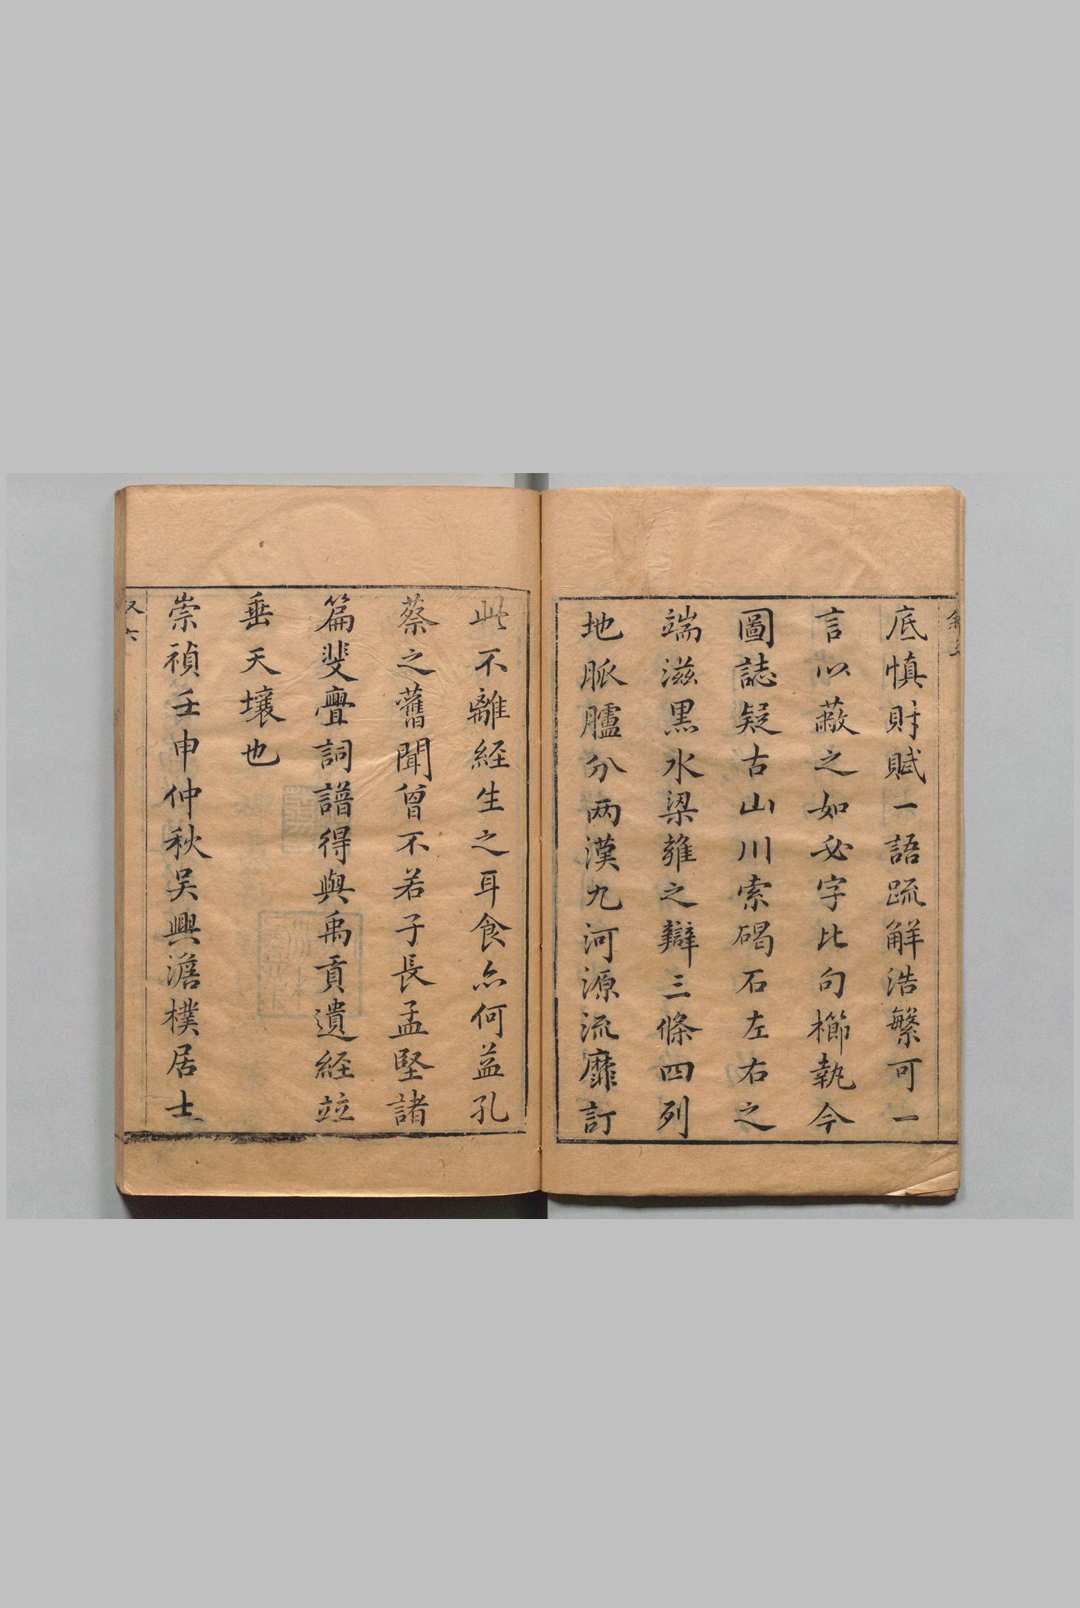 底慎財賦一語疏解浩繁可一
言以蔽之如必字比句櫛執今
圖誌疑古山川索碣石左右之
端滋黑水梁雍之辯三條四列
地脈臚分兩漢九河源流靡訂
此不離經生之耳食亦何益孔
蔡之舊聞曾不若子長孟堅諸
篇斐亹詞譜得與禹貢遺經竝
垂天壤也
崇禎壬申仲秋吳興澹樸居士